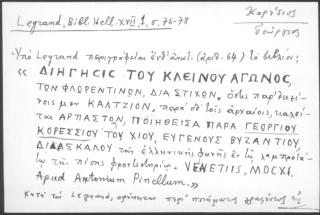 Legrand, Bibl. Hell. XVII, 1, σ. 76-78
Κορέσσιος
Γεώργιος
Ὑπὸ Legrand περιγράφεται ἐνθ' ἀνωτ. (ἀριθ. 64) τὸ βιβλίον:
« ΔΙΗΓΗΣΙΣ ΤΟΥ ΚΛΕΙΝΟΥ ΑΓΩΝΟΣ,
ΤΩΝ ΦΛΩΡΕΝΤΙΝΩΝ, ΔΙΑ ΣΤΙΧΩΝ, ὅστις παρ' ἐκεί-
νοις μὲν ΚΑΛΤΖΙΟΝ, παρὰ δὲ τοῖς ἀρχαίοις καλεῖ-
ται ΑΡΠΑΣΤΟΝ, ΠΟΙΗΘΕΙΣΑ ΠΑΡΑ ΓΕΩΡΓΙΟΥ
ΚΟΡΕΣΣΙΟΥ ΤΟΥ ΧΙΟΥ, ΕΥΓΕΝΟΥΣ ΒΥΖΑΝΤΙΟΥ,
ΔΙΔΑΣΚΑΛΟΥ τῆς ἑλληνικῆς φωνῆς ἐν τῷ λαμπροτά-
τῳ τῆς Πίσης φροντιστηρίῳ. VENETIIS, MDCXI.
Apud Antonium Pinellum.»
Κατὰ τὸν Legrand, πρόκειται περὶ ποιήματος